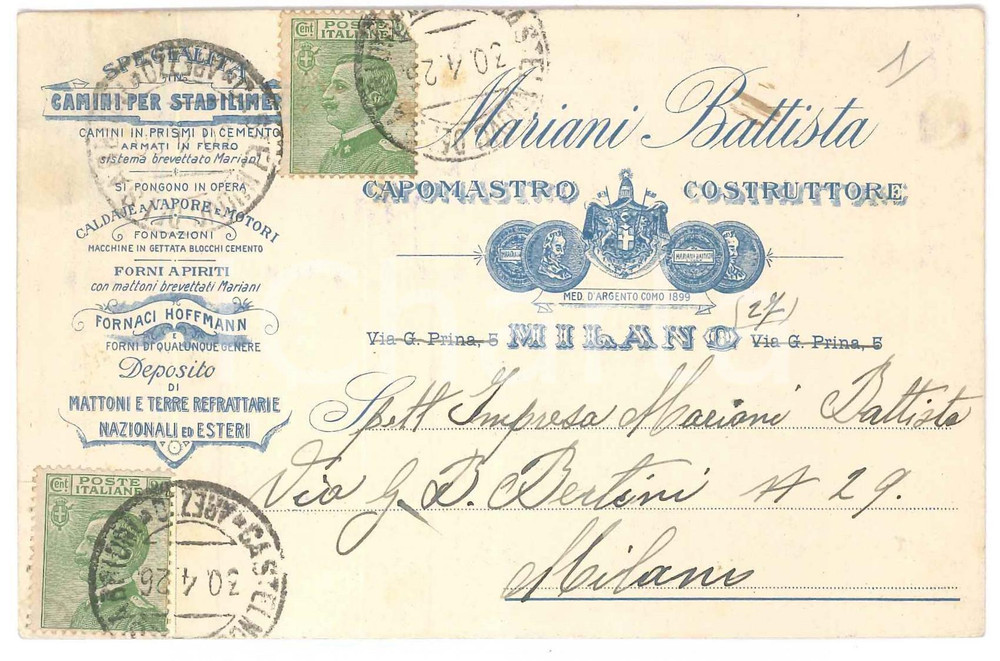 SPECIALITÀ
CAMINI PER STABILIME
CAMINI IN PRISMI DI CEMENTO
ARMATI IN FERRO
sistema brevettato Mariani
SI PONGONO IN OPERA
CALDAJE A VAPORE E MOTORI
FONDAZIONI
MACCHINE IN GETTATA BLOCCHI CEMENTO
FORNI A PIRITI
con mattoni brevettati Mariani
FORNACI HOFFMANN
E
FORNI DI QUALUNQUE GENERE
Deposito
DI
MATTONI E TERRE REFRATTARIE
NAZIONALI ED ESTERI
Cent. POSTE
ITALIANE
30.4.26
1
Mariani Battista
CAPOMASTRO COSTRUTTORE
MED. D'ARGENTO COMO 1899
(27)
Via G. Prina, 5 MILANO Via G. Prina, 5
Spett Impresa Mariani Battista
Via G. B. Bertini N 29.
Milano
Cent. POSTE
ITALIANE
30.4.26